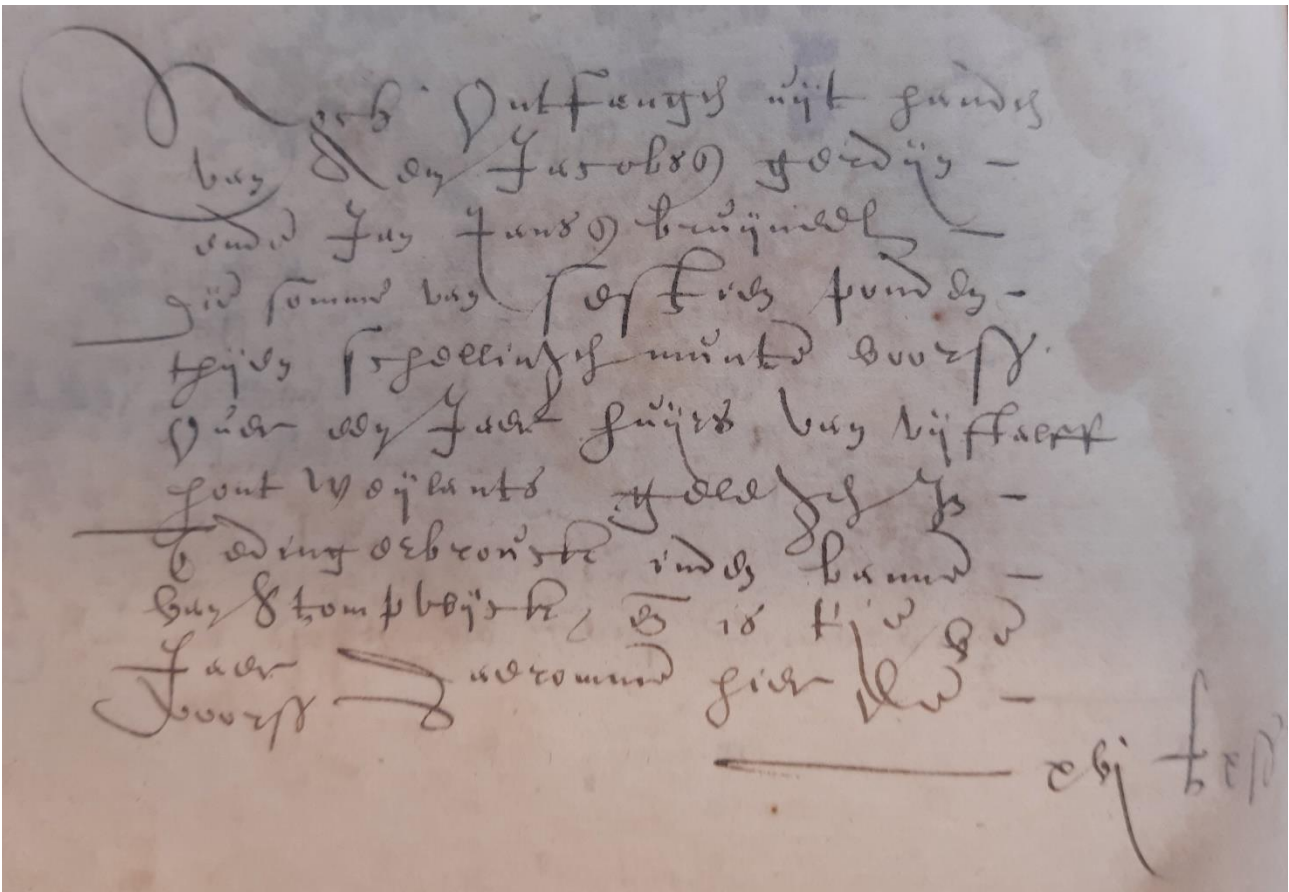 Noch Ontfangh uijt handen
van Jacobs gerrijtz
ende Jan Jans bruijneel
die somme van sestien ponden
thijen schellingen munte voorss
Over een Jaer huijrs van vijftalff
hont weijlants gelegen In
Gedingebrouck inden banne
van Stompwijck, en is t' je
Jaer Daeromme hier De
voorss
xvj £ x ß